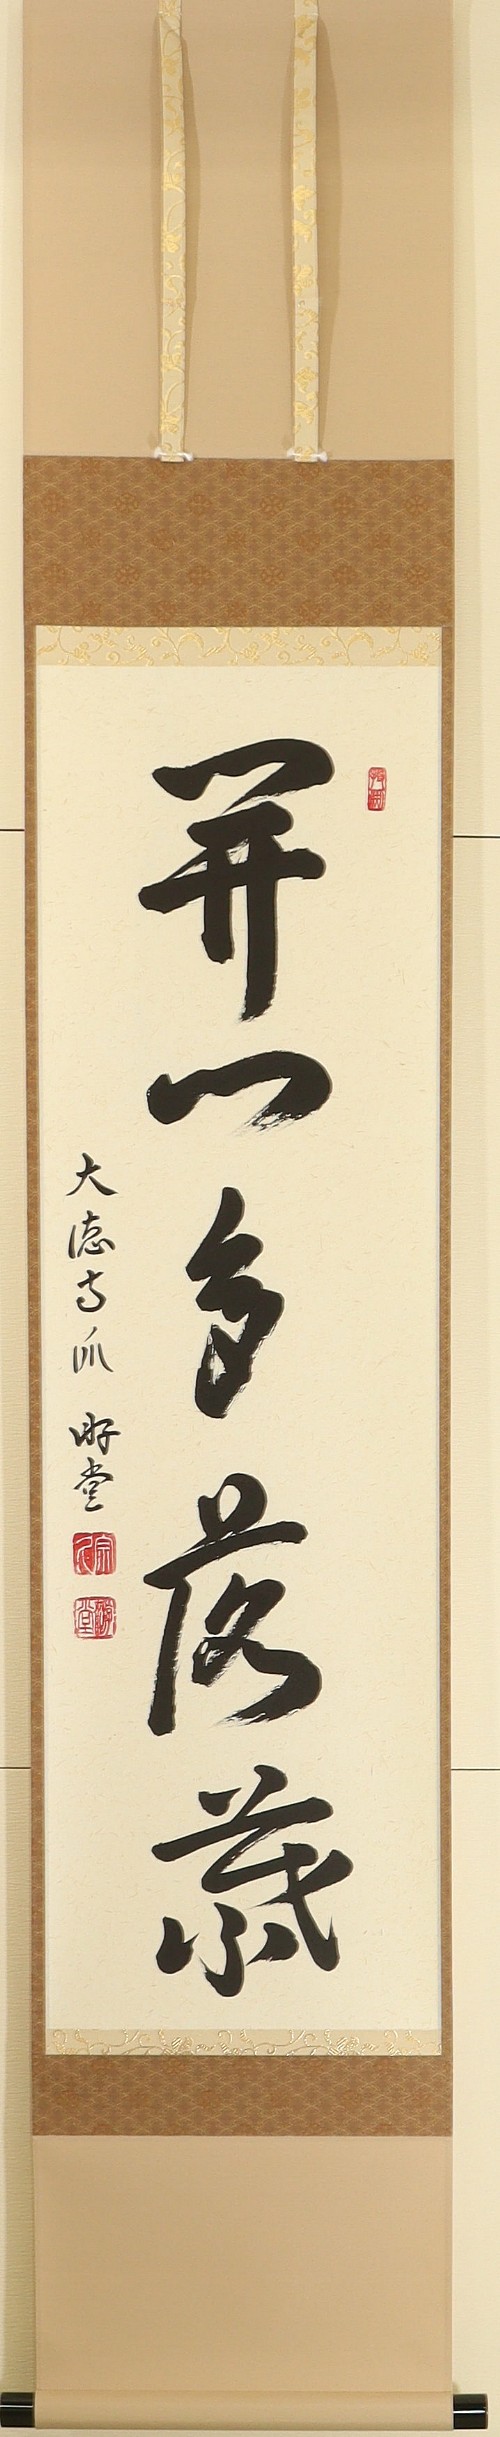 開門多落葉
大徳寺派 剛堂